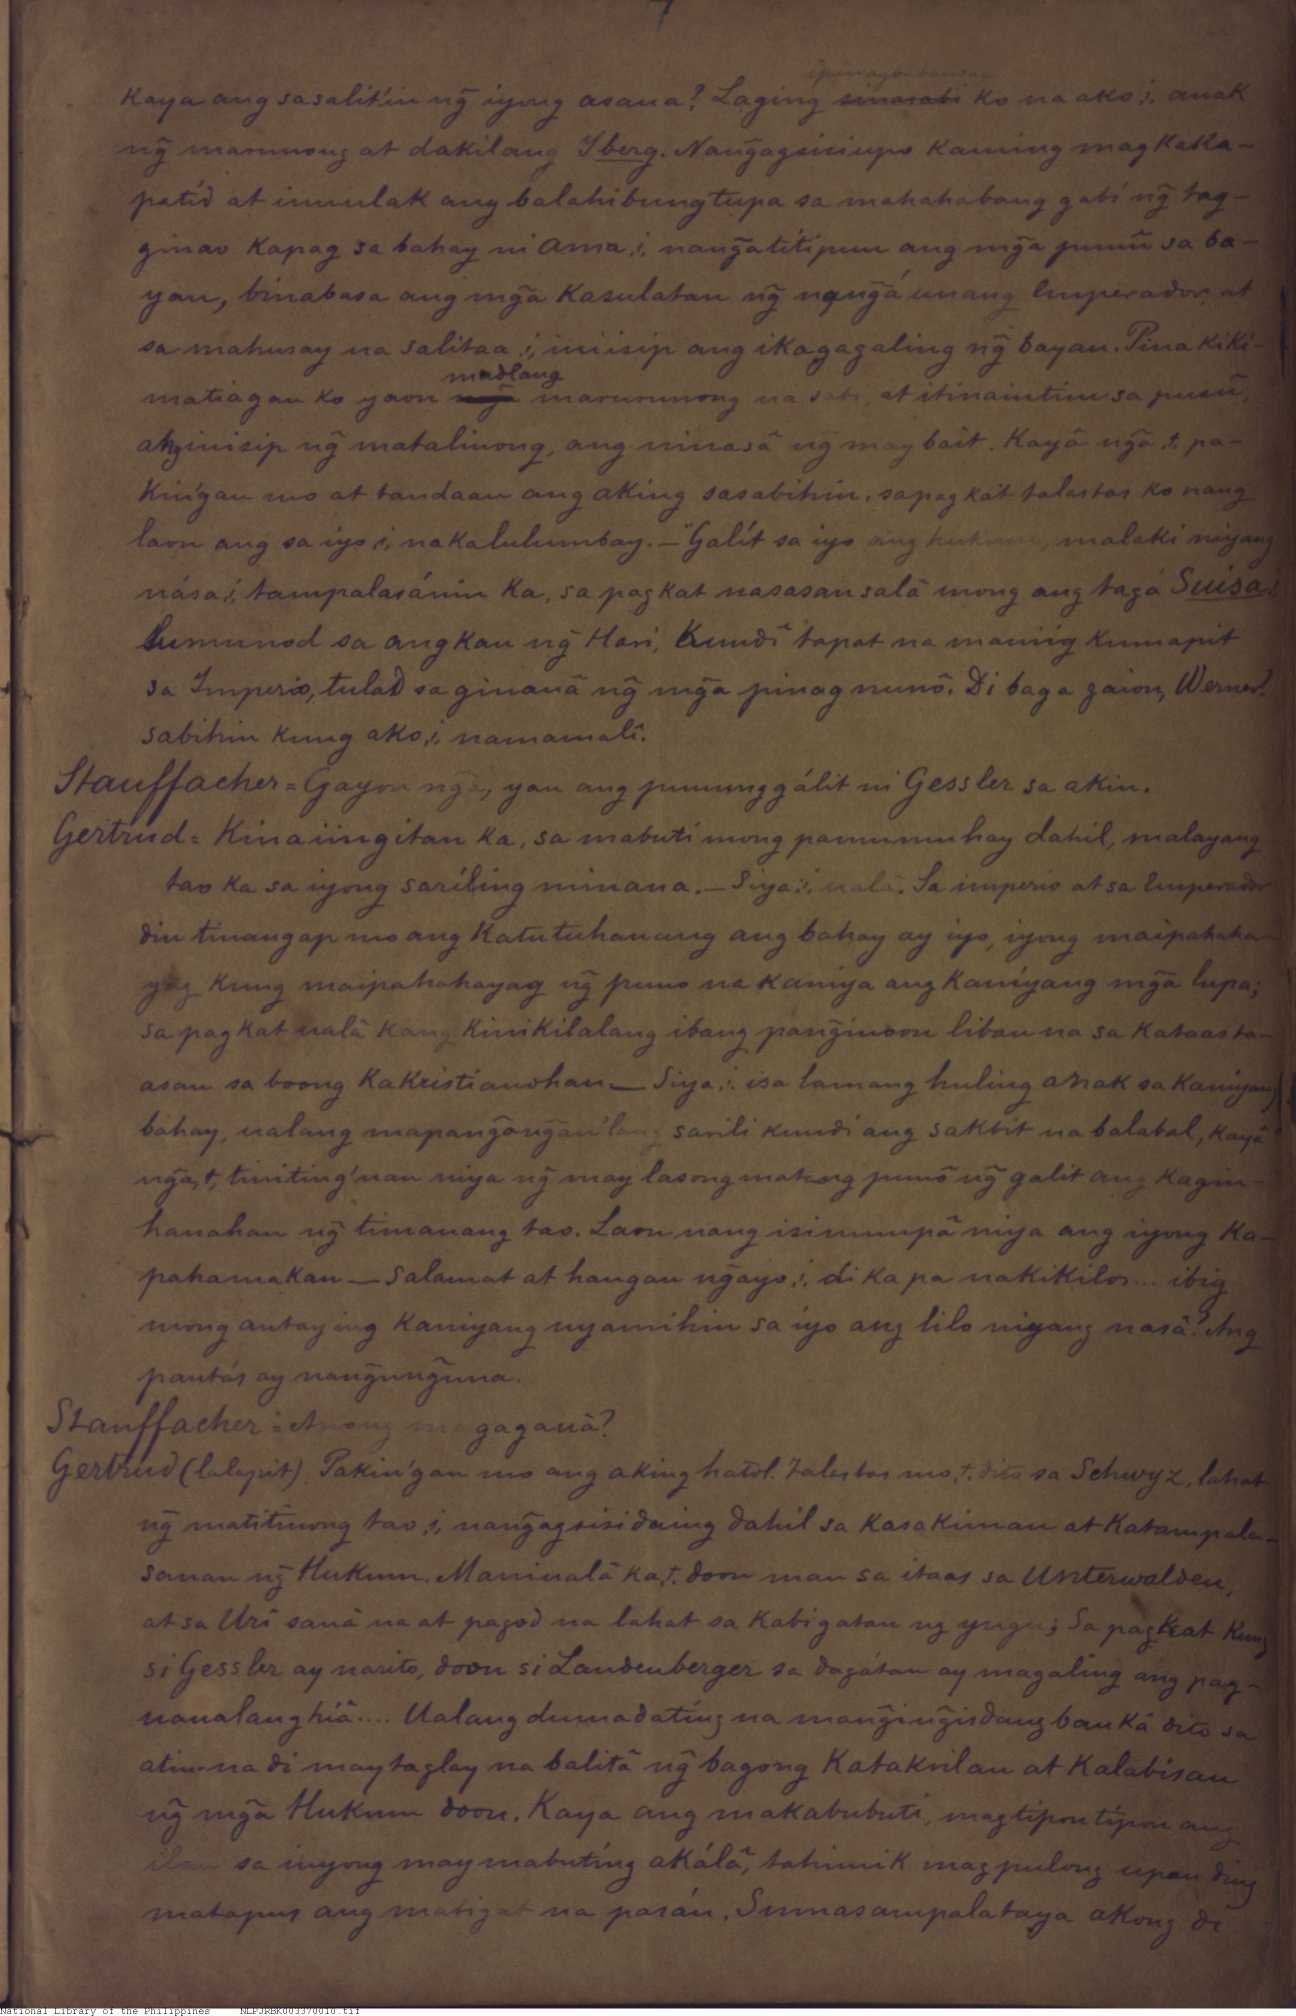 7
ipinagbabansag
Kaya ang sasalit'in ng̃ iyong asaua? Laging sinasabi ko na ako,i, anak
ng̃ marunong at dakilang Iberg. Nang̃agsisiupo kaming magkaka-
patíd at inuulak ang balahibung tupa sa mahahabang gabí ng̃ tag-
ginao kapag sa bahay ni Ama,i, nang̃atitipun ang mg̃a punũ sa ba-
yan, binabasa ang mg̃a kasulatan ng̃ nang̃á unang Imperador at
sa mahusay na salitaa,i, iniisip ang ikagagaling ng̃ bayan. Pinakiki-
madlang
matiagan ko yaon mg̃a marurunong na sabi, at itinaintim sa pusũ,
ang iniisip ng̃ matalinong, ang ninasã ng̃ may bait. Kayã ng̃a,t, pa-
kin'gan mo at tandaan ang aking sasabihin, sapagkát talastas ko nang
laon ang sa iyo,i, nakalulumbay. — "Galít sa iyo ang hukum, malaki niyang
nása,i, tampalasánin ka, sa pagkat nasasansalã mong ang tagá Suisa,i,
sumunod sa angkan ng̃ Hari, kundĩ tapat na maniig kumapit
sa Imperio, tulad sa ginauã ng̃ mg̃a pinag nunõ. Di baga gaion, Werner?
sabihin kung ako,i, namamalĩ.
Stauffacher = Gayon ng̃a, yan ang punung gálit ni Gessler sa akin.
Gertrud = Kinaiingitan ka, sa mabuti mong pamumuhay dahil, malayang
tao ka sa iyong saríling minana. — Siya,i, ualã. Sa imperio at sa Emperador
din tinangap mo ang katutuhanang ang bahay ay iyo, iyong maipahaha-
yag kung maipahahayag ng̃ puno na kaniya ang kaniyang mg̃a lupa;
sa pagkat ualã kang kinikilalang ibang pang̃inoon liban na sa kataasta-
asan sa boong kakristianohan — Siya,i, isa lamang huling anak sa kaniyang
bahay, ualang mapang̃ang̃an'lang sarili kundi ang sakbit na balabal, kayã
ng̃a,t, tiniting'nan niya ng̃ may lasong matang punõ ng̃ galit ang kagin-
hauahan ng̃ timauang tao. Laon nang isinumpã niya ang iyong ka-
pahamakan — Salamat at hangan ng̃ayo,i, di ka pa nakikilos... ibig
mong antaying kaniyang uyamihin sa iyo ang lilo niyang nasã? Ang
pantás ay nang̃ung̃una.
Stauffacher = Anong magagauã?
Gertrud (lalapit). Pakin'gan mo ang aking hatol. Talastas mo,t, dito sa Schwyz, lahat
ng̃ matitinong tao,i, nang̃agsisidaing dahil sa kasakiman at katampala-
sanan ng̃ Hukum. Maniualã ka,t, doon man sa itaas sa Unterwalden,
at sa Uri sauã na at pagod na lahat sa kabigatan ng yugu; Sa pagkat kung
si Gessler ay narito, doon si Landenberger sa dagátan ay magaling ang pag-
uaualang hiã.... Ualang dumadatíng na mang̃ing̃isdang bankã dito sa
atin na di may taglay na balitã ng̃ bagong kataksilan at kalabisan
ng̃ mg̃a Hukum doon. Kaya ang makabubuti, magtipon tipon ang
ilan sa inyong may mabutíng akálã, tahimik mag pulong upan ding
matapus ang mabigat na pasán. Sumasampalataya akong di
National Library of the Philippines NLPJRBK003370010.tif